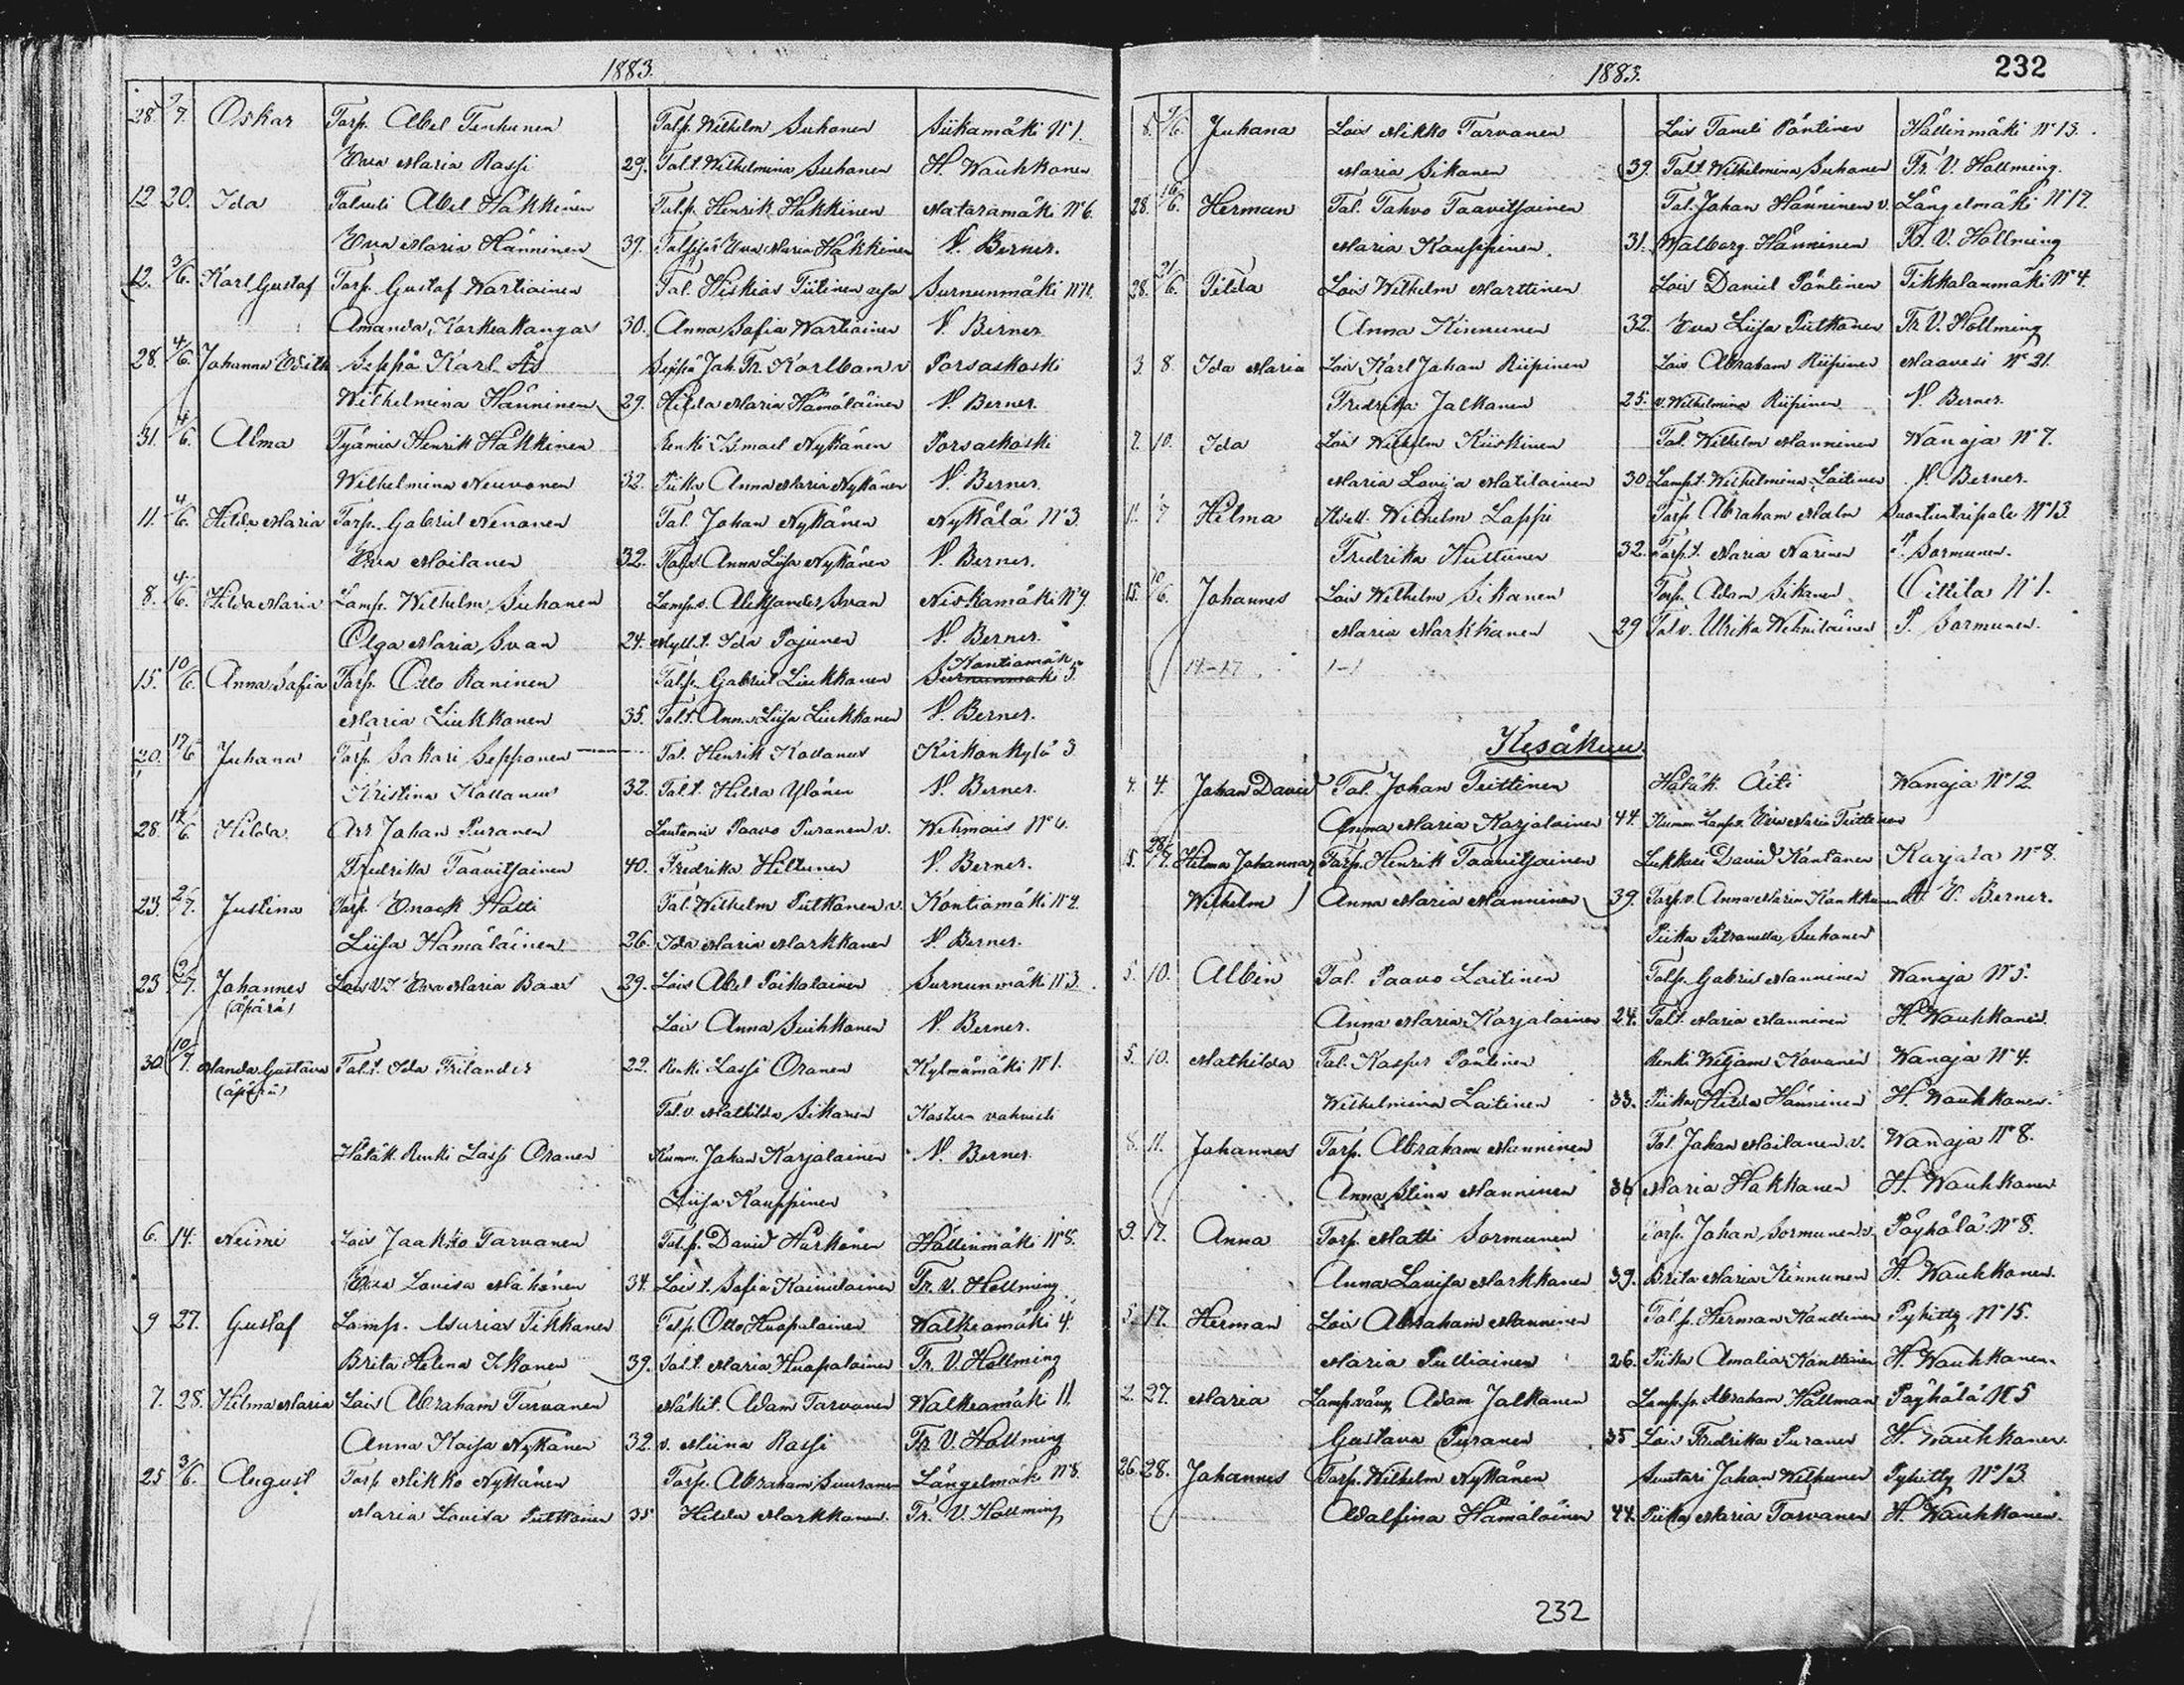 1883.
28 2/7. Oskar Torp. Abel Tenhunen Talp. Wilhelm Suhonen Siikamäki N:1.
Ewa Maria Rassi 29. Tal.t. Wilhelmina Suhonen H. Wauhkonen
12 20. Ida Talveli Abel Häkkinen Tal.p. Henrik Häkkinen Mataramäki N:6.
Ewa Maria Hänninen 39. Ewa Maria Häkkinen N. Berner.
12. 3/6. Karl Gustaf Torp. Gustaf Wartiainen Tal. Hiskias Tiitinen Surnunmäki
Amanda Korkeakangas 30. Anna Sofia Wartiainen N. Berner
28. 4/6. Johanna Edith Seppä Karl Ås Seppä Joh. Fr. Karlbom v Porsaskoski
Wilhelmina Hänninen 29. Hilda Maria Hämäläinen N. Berner.
31. 4/6. Alma Työmies Henrik Häkkinen Renki Ismael Nykänen Porsaskoski
Wilhelmina Neuvonen 32. Piika Anna Maria Nykänen N. Berner.
11. 4/6. Hilda Maria Torp. Gabriel Nenonen Tal. Johan Nykänen Nykälä N:3.
Ewa Moilanen 32. Tal.v. Anna Liisa Nykänen N. Berner.
8. 4/6. Hilda Maria Lamp. Wilhelm Suhonen Lamp.v. Aleksander Svan Niskamäki N:9
Olga Maria Svan 24. Myll.t. Ida Pajunen N. Berner.
15. 10/6. Anna Sofia Torp. Otto Raninen Tal.p. Gabriel Liukkonen Kontiomäk Surnunmäki 5
Maria Liukkonen 35. Tal.t. Anna Liisa Liukkonen N. Berner.
20. 17/6 Juhana Torp. Sakari Sepponen Tal. Henrik Kollanus Kirkonkylä 3
Kristina Kollanus 32. Tal.t. Hilda Ylönen N. Berner.
28 17/6 Hilda Arr Johan Puranen Lautamies Paavo Puranen v. Wehmais N:6.
Fredrika Taavitsainen 40. Fredrika Hiltunen N. Berner.
23. 2/7. Justina Torp. Enock Hätti Tal. Wilhelm Putkonen v. Kontiomäki N:2.
Liisa Hämäläinen 26. Ida Maria Markkanen N. Berner.
23 2/7. Johannes Lois Ewa Maria 29. Lois Abel Poikolainen Surnunmäki N:3.
(äpärä) Lois Anna Suihkonen N. Berner.
30. 10/7. Manda Gustava Tal.t. Ida Frilander 22. Renki Lassi Oranen Kylmämäki N:1.
(äpärä) Tal.v. Mathilda Sikanen Kasteen vahvisti
Hätäk. Renki Lassi Oranen Kumm. Johan Karjalainen N. Berner.
Liisa Kauppinen
6. 14. Neimi Lois Jaakko Tarvanen Tal.p. David Härkönen Hällinmäki N:8.
Ewa Lovisa Mähönen 34. Lois t. Sofia Kainulainen Fr. V. Hollming
9 27. Gustaf Lamp. Asarias Tikkanen Tal.p. Otto Huopalainen Walkiamäki 4.
Brita Helena Ikonen 39. Tal.t. Maria Huopalainen Fr. V. Hollming
7. 28. Hilma Maria Lois Abraham Tarvanen Mäkit. Adam Tarvanen Walkiamäki 11.
Anna Kaisa Nykänen 32. v. Miina Rassi Fr. V. Hollming
25 3/6. August Torp Mikko Nykänen Torp. Abraham Suuronen Längelmäki N:8.
Maria Lovisa Putkonen 35 Hilda Markkanen. Fr. V. Hollming
1883. 232
8. 9/6. Juhana Lois Mikko Tarvanen Lois Taneli Pöntinen Hällinmäki N:13.
Maria Sikanen 39. Tal.t. Wilhelmina Suhonen Fr. V. Hollming.
28. 16/6. Herman Tal. Tahvo Taavitsainen Tal. Johan Hänninen v. Längelmäki N:17.
Maria Kauppinen. 31. Walborg Hänninen Fr. V. Hollming
28. 21/6. Tilda Lois Wilhelm Marttinen Lois Daniel Pöntinen Tikkalanmäki N:4.
Anna Kinnunen 32. Ewa Liisa Putkonen Fr. V. Hollming
3. 8. Ida Maria Lois Karl Johan Riipinen Lois Abraham Riipinen Maavesi N:21.
Fredrika Jalkanen 25. v. Wilhelmina Riipinen N. Berner.
7. 10. Ida Lois Wilhelm Kiiskinen Tal. Wilhelm Manninen Wanaja N:7.
Maria Lovisa Matilainen 30 Lamp.t. Wilhelmina Laitinen N. Berner.
11. 7 Hilma Wilhelm Lappi Torp Abraham Malm Suontientaipale N:13.
Fredrika Huttunen 32. Torp.t. Maria Narinen P. Sormunen.
15. 10/6. Johannes Lois Wilhelm Sikanen Torp. Adam Sikanen Cittila N:1.
Maria Markkanen 29 Tal v. Ulrika Wehviläinen P. Sormunen.
18-17 1-1
Kesäkuu.
4. 4. Johan David Tal. Johan Teittinen Hätäk. Äiti Wanaja N:12
Anna Maria Karjalainen 44. Kumm. Lamp.v. Ewa Maria Teittinen
5. 28/7. Hilma Johanna Torp. Henrik Taavitsainen Lukkari David Kantanen Karjala N:8.
Wilhelm Anna Maria Manninen 39. Torp.v. Anna Maria Kankkunen N. E. Berner.
Piika Petronella Suhonen
5. 10. Albin Tal. Paavo Laitinen Tal.p. Gabriel Manninen Wanaja N:5.
Anna Maria Karjalainen 24. Tal.t. Maria Manninen H. Wauhkonen.
5. 10. Mathilda Tal. Kasper Pöntinen Renki Wiljam Kovanen Wanaja N:4.
Wilhelmina Laitinen 33. Piika Hilda Hänninen H. Wauhkonen.
8. 11. Johannes Torp. Abraham Manninen Tal. Johan Moilanen v. Wanaja N:8.
Anna Stina Manninen 36 Maria Hakkanen H. Wauhkonen
9. 17. Anna Torp. Matti Sormunen Torp. Johan Sormunen v. Pöyhölä N:8.
Anna Lovisa Markkanen 39. Brita Maria Kinnunen H. Wauhkonen.
5. 17. Herman Lois Abraham Manninen Tal.p. Herman Kanttinen Pyhitty N:15.
Maria Pulliainen 26. Piika Amalia Kanttinen H. Wauhkonen.
2. 27. Maria Lampväny Adam Jalkanen Lamp.p. Abraham Hällman Pöyhölä N:5
Gustava Puranen 35 Lois Fredrika Puranen H. Wauhkonen.
26. 28. Johannes Torp. Wilhelm Nykänen Suntari Johan Wilhunen Pyhitty N:13
Adolfina Hämäläinen 44. Piika Maria Tarvanen H. Wauhkonen.
232